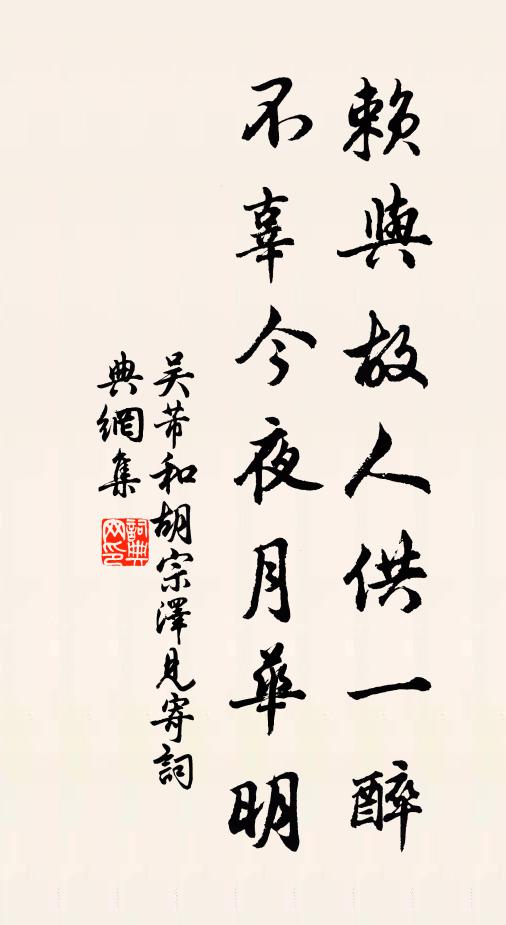 賴與故人供一醉
不辜今夜月華明
吴芾和胡宗澤見寄詞
典網集
詞典
网印